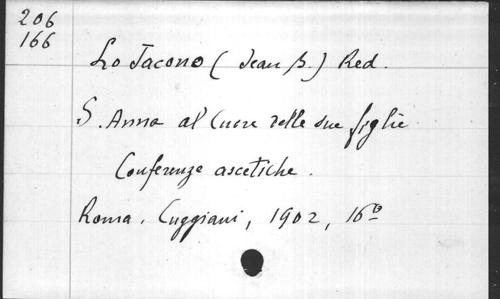 206
166
Lo Jacono (Jean B.) Red.
S. Anna al Cuore delle sue figlie
Conferenze ascetiche.
Roma. Cuggiani, 1902, 16º